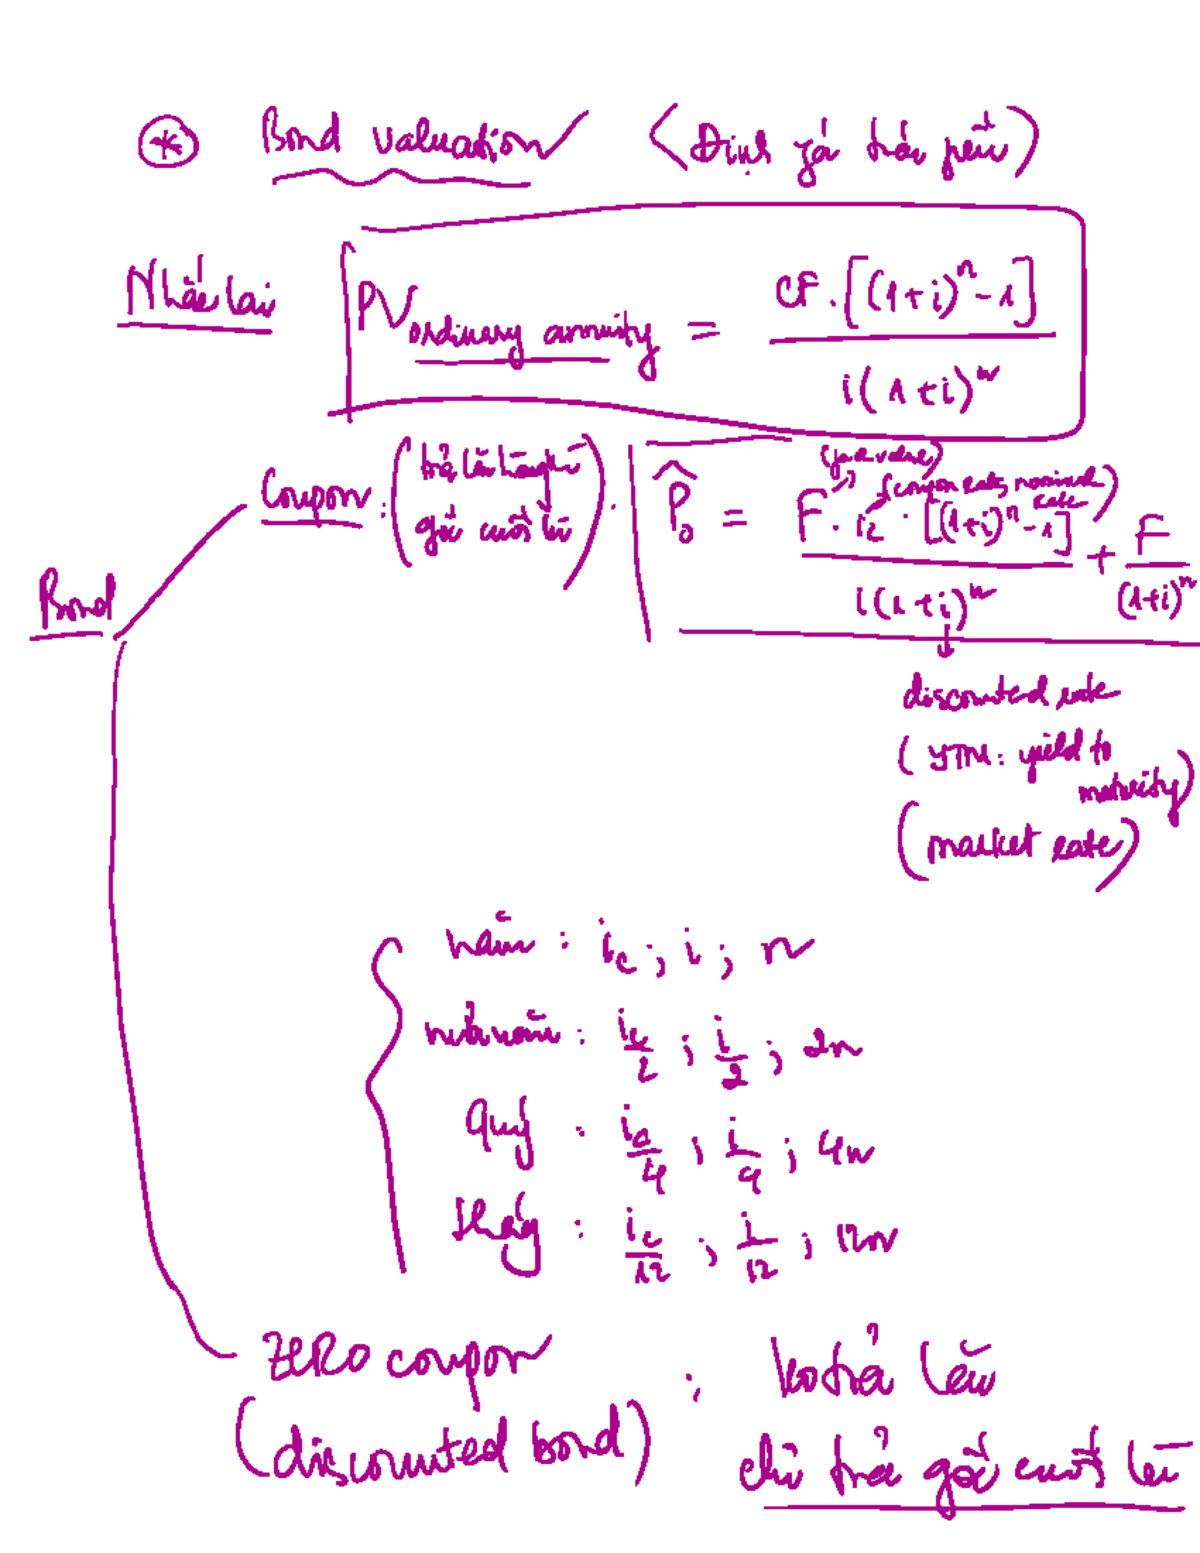 * Bond valuation (Định giá trái phiếu)
Nhắc lại PV ordinary annuity = CF.[(1+i)^n - 1] / i(1+i)^n
Coupon: (trả lãi hàng kì
gốc cuối kì)
P̂₀ = F.i_c.[(1+i)^n - 1] / i(1+i)^n + F / (1+i)^n
(face value)
(coupon rate, nominal rate)
Bond
discounted rate
(YTM: yield to maturity)
(market rate)
năm: i_c; i; n
nửa năm: i_c/2; i/2; 2n
Quý: i_c/4; i/4; 4n
tháng: i_c/12; i/12; 12n
ZERO coupon : ko trả lãi
(discounted bond) chỉ trả gốc cuối kì